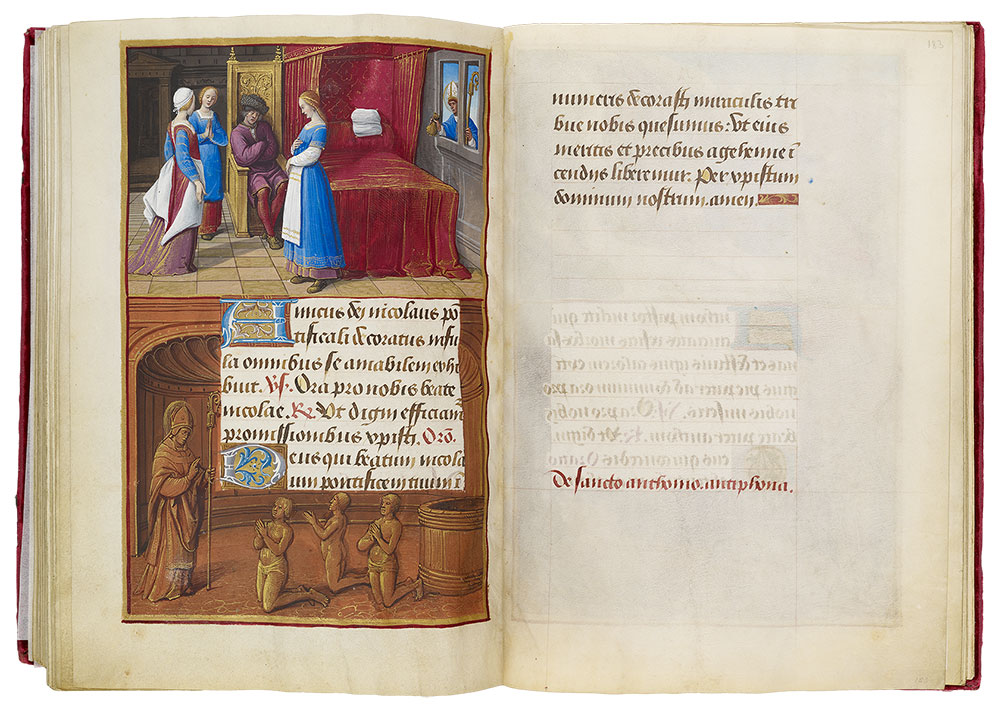 Amicus dei nicolaus po͞
tificali decoratus infu
la omnibus se amabilem exhi
buit. Vs. Ora pro nobis beate
nicolae. Re Vt digni efficiam͞
promissionibus xpisti. Oro͞.
Deus qui beatum nicola
um pontificem tuum i͞
183
numeris decorasti miraculis tri
bue nobis quesumus: Vt eius
meritis et precibus a gehenne i͞
cendijs liberemur. Per xpistum
dominum nostrum. amen.
De sancto anthonio. antiphona.